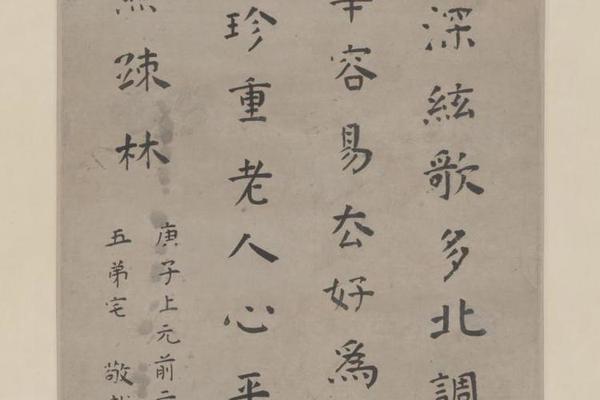 深絃歌多北調
容易厺好爲
珍重老人心平
疎林
庚子上元前二
五弟宅 敬